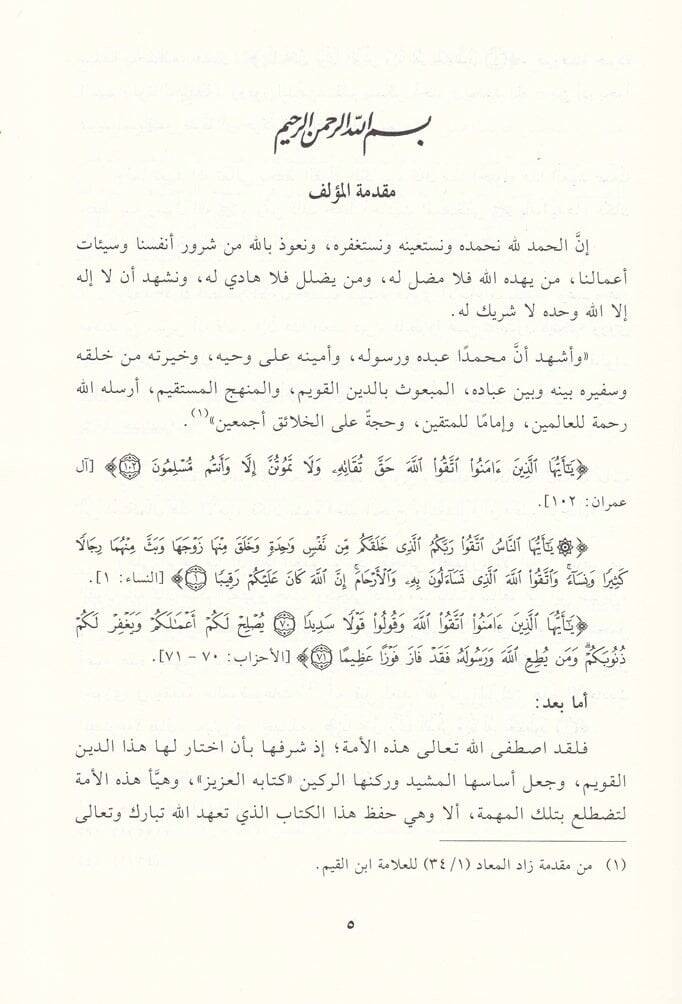 بسم الله الرحمن الرحيم
مقدمة المؤلف
إنَّ الحمد لله نحمده ونستعينه ونستغفره، ونعوذ بالله من شرور أنفسنا وسيئات
أعمالنا، من يهده الله فلا مضل له، ومن يضلل فلا هادي له، ونشهد أن لا إله
إلا الله وحده لا شريك له.
«وأشهد أنَّ محمدًا عبده ورسوله، وأمينه على وحيه، وخيرته من خلقه
وسفيره بينه وبين عباده، المبعوث بالدين القويم، والمنهج المستقيم، أرسله الله
رحمة للعالمين، وإمامًا للمتقين، وحجةً على الخلائق أجمعين»(١).
﴿يَـٰٓأَيُّهَا ٱلَّذِينَ ءَامَنُوا۟ ٱتَّقُوا۟ ٱللَّهَ حَقَّ تُقَاتِهِۦ وَلَا تَمُوتُنَّ إِلَّا وَأَنتُم مُّسْلِمُونَ ١٠٢﴾ [آل
عمران: ١٠٢].
﴿۞ يَـٰٓأَيُّهَا ٱلنَّاسُ ٱتَّقُوا۟ رَبَّكُمُ ٱلَّذِى خَلَقَكُم مِّن نَّفْسٍ وَٰحِدَةٍ وَخَلَقَ مِنْهَا زَوْجَهَا وَبَثَّ مِنْهُمَا رِجَالًا
كَثِيرًا وَنِسَآءً ۚ وَٱتَّقُوا۟ ٱللَّهَ ٱلَّذِى تَسَآءَلُونَ بِهِۦ وَٱلْأَرْحَامَ ۚ إِنَّ ٱللَّهَ كَانَ عَلَيْكُمْ رَقِيبًا ١﴾ [النساء: ١].
﴿يَـٰٓأَيُّهَا ٱلَّذِينَ ءَامَنُوا۟ ٱتَّقُوا۟ ٱللَّهَ وَقُولُوا۟ قَوْلًا سَدِيدًا ٧٠ يُصْلِحْ لَكُمْ أَعْمَـٰلَكُمْ وَيَغْفِرْ لَكُمْ
ذُنُوبَكُمْ ۗ وَمَن يُطِعِ ٱللَّهَ وَرَسُولَهُۥ فَقَدْ فَازَ فَوْزًا عَظِيمًا ٧١﴾ [الأحزاب: ٧٠ – ٧١].
أما بعد:
فلقد اصطفى الله تعالى هذه الأمة؛ إذ شرفها بأن اختار لها هذا الدين
القويم، وجعل أساسها المشيد وركنها الركين «كتابه العزيز»، وهيَّأ هذه الأمة
لتضطلع بتلك المهمة، ألا وهي حفظ هذا الكتاب الذي تعهد الله تبارك وتعالى
(١) من مقدمة زاد المعاد (٣٤/١) للعلامة ابن القيم.
٥